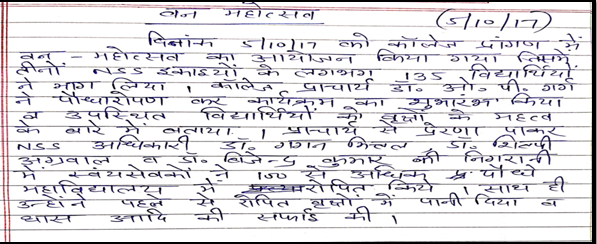 वन महोत्सव (5/10/17)
दिनांक 5/10/17 को कॉलेज प्रांगण में
वन - महोत्सव का आयोजन किया गया जिसमें
तीनों NSS इकाइयों के लगभग 135 विद्यार्थियों
ने भाग लिया । कॉलेज प्राचार्य डॉ. ओ. पी. गर्ग
ने पौधारोपण कर कार्यक्रम का शुभारंभ किया
व उपस्थित विद्यार्थियों को वृक्षों के महत्व
के बारे में बताया । प्राचार्य से प्रेरणा पाकर
NSS अधिकारी डॉ. गगन मित्तल, डॉ. शिल्पी
अग्रवाल व डॉ. विजेन्द्र कुमार की निगरानी
में स्वयंसेवकों ने 100 से अधिक पौधे
महाविद्यालय में रोपित किये । साथ ही
उन्होंने पहले से रोपित वृक्षों में पानी दिया व
घास आदि की सफाई की ।